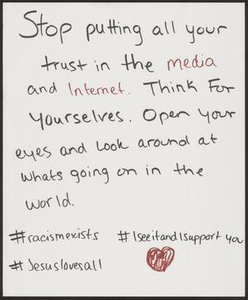 Stop putting all your
trust in the media
and Internet. Think For
Yourselves. Open Your
eyes and look around at
whats going on in the
world.
#racismexists #Iseeitand Isupport you
#Jesuslovesall